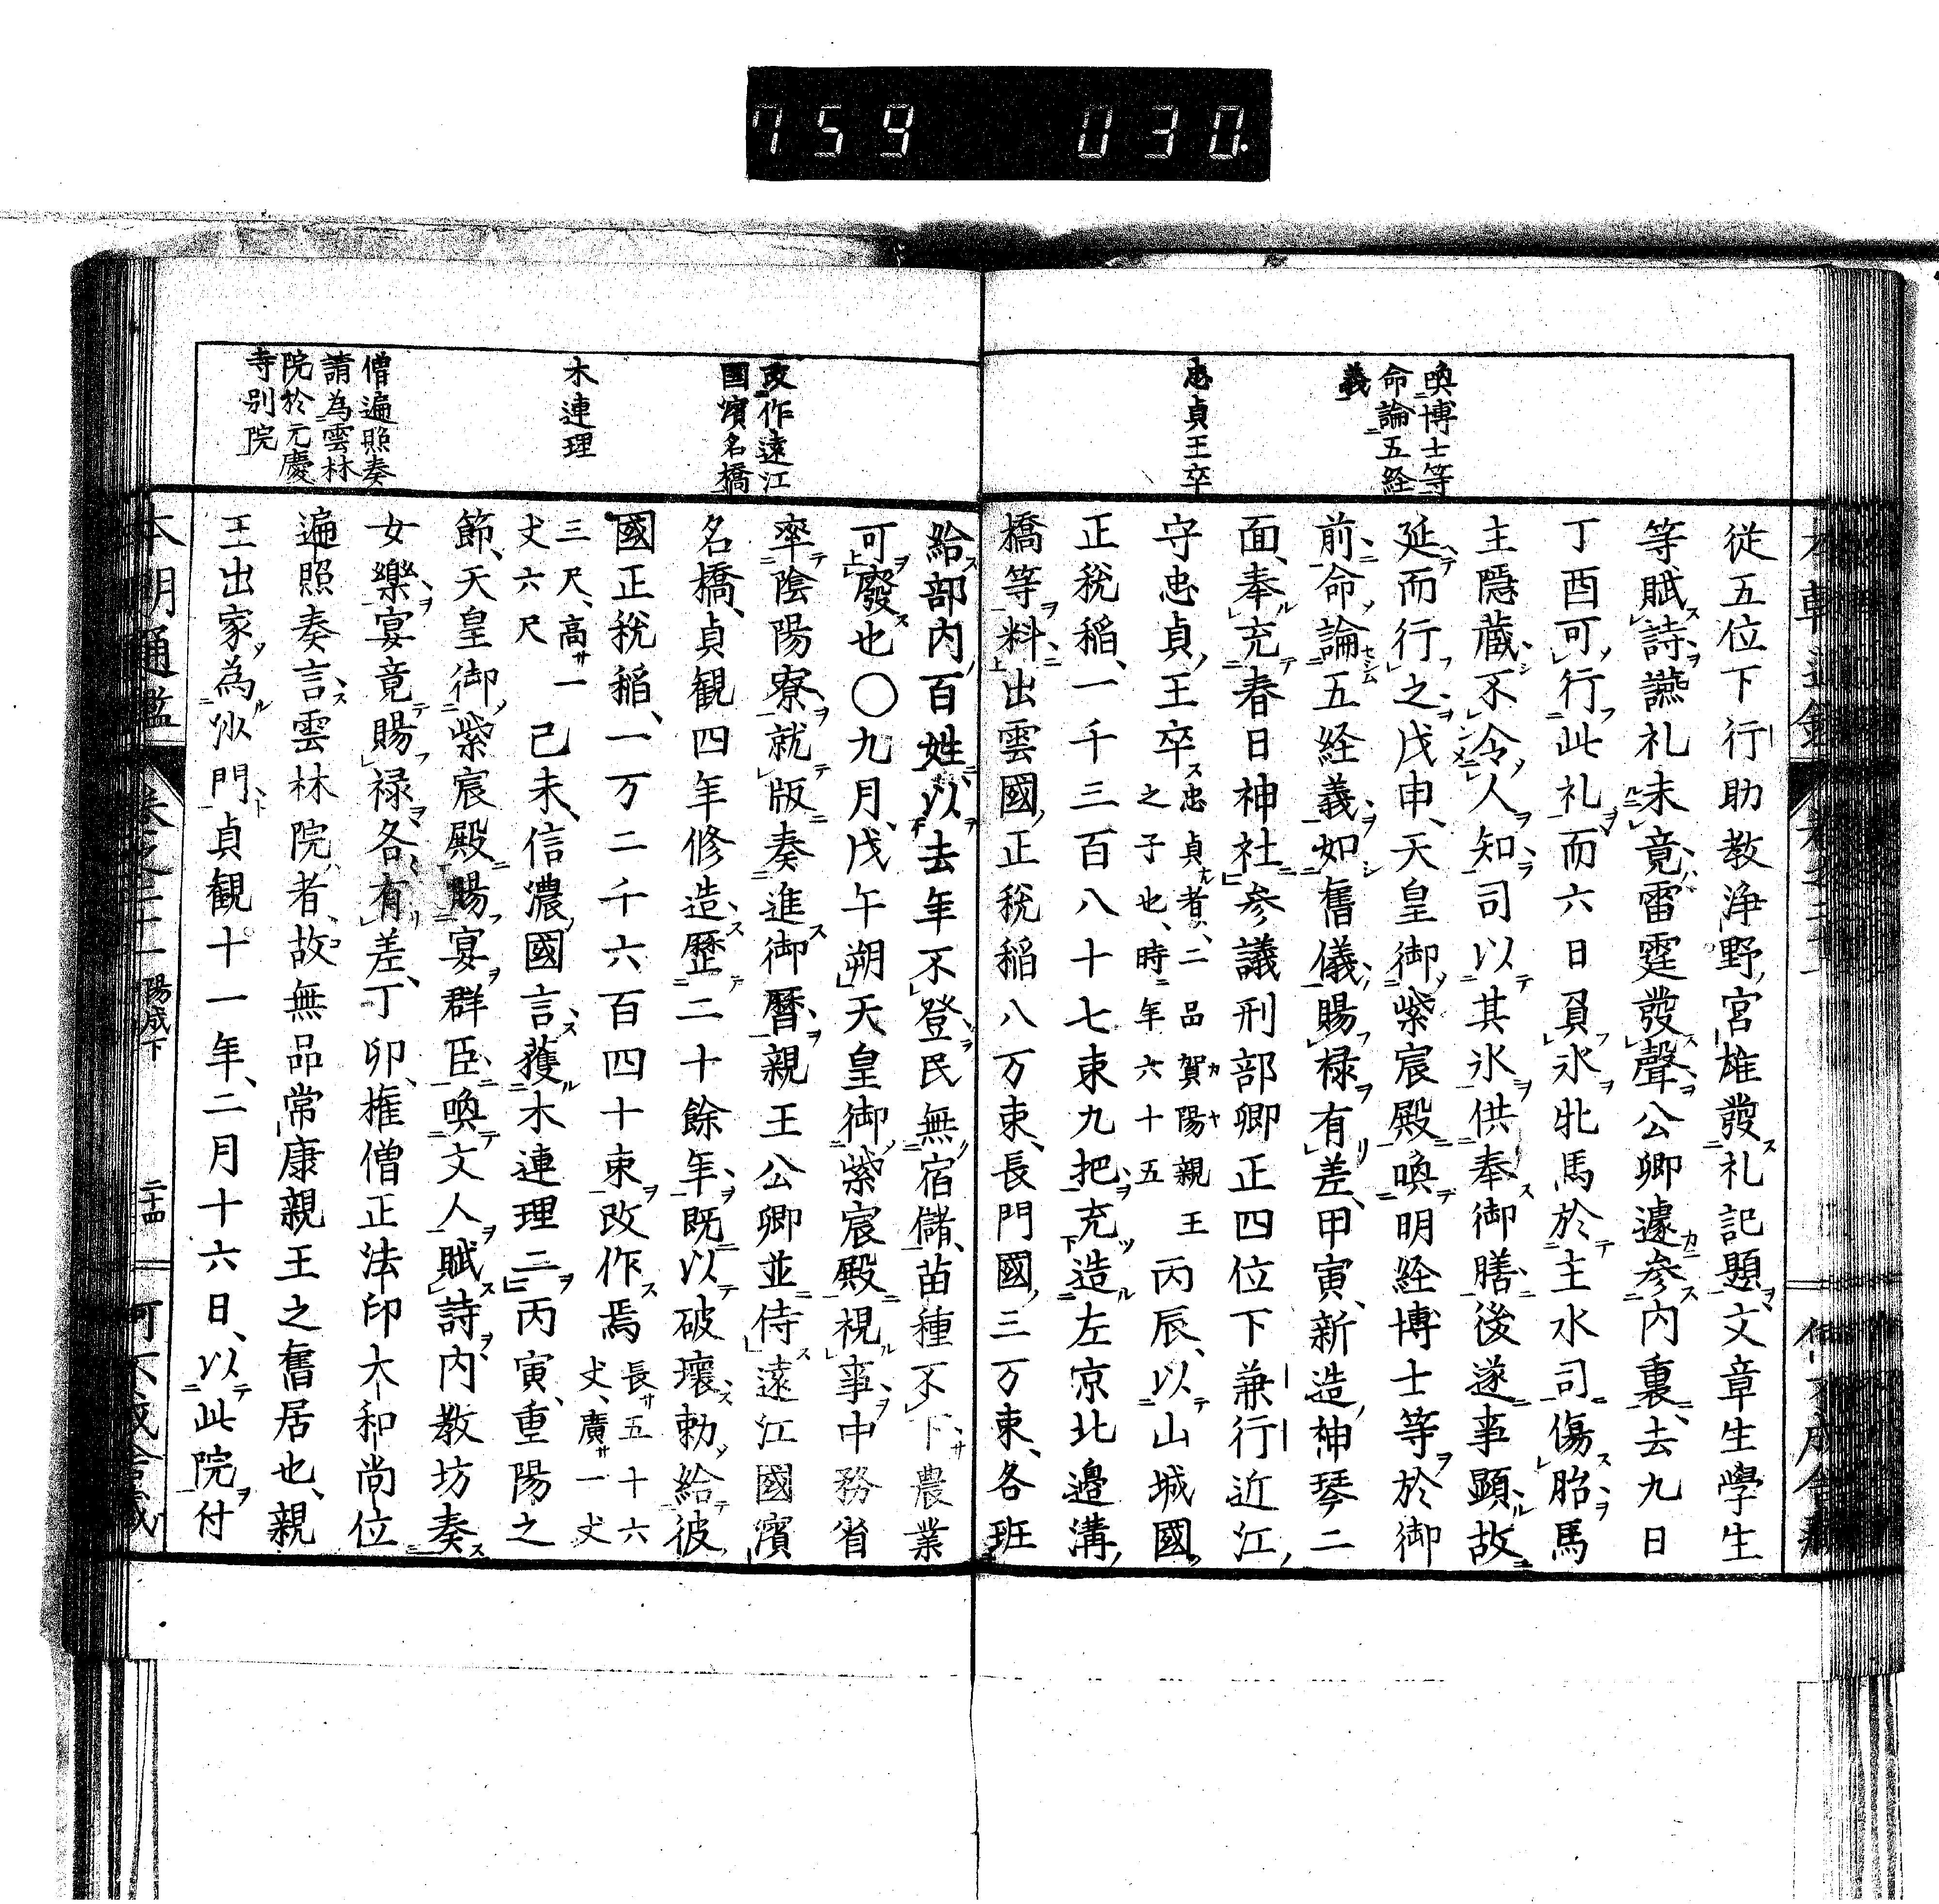 759 030
喚博士等
命論五経
義
忠貞王卒
從五位下行助教浄野宮雄發礼記題文章生學生
等賦詩讌礼未竟雷霆發聲公卿遽参内裏去九日
丁酉可行此礼而六日員氷牝馬於主水司傷胎馬
主隠蔵不令人知司以其氷供奉御膳後遂事顕故
延而行之戊申天皇御紫宸殿喚明経博士等於御
前命論五経義如舊儀賜禄有差甲寅新造神琴二
面奉充春日神社参議刑部卿正四位下兼行近江
守忠貞王卒忠貞者二品賀陽親王
之子也時年六十五丙辰以山城國
正税稲一千三百八十七束九把充造左京北邉溝
橋等料出雲國正税稲八万束長門國三万束各班
改作遠江
國濱名橋
木連理
僧遍照奏
請為雲林
院於元慶
寺別院
給部内百姓以去年不登民無宿儲苗種不下農業
可廢也〇九月戊午朔天皇御紫宸殿視事中務省
率陰陽寮就版奏進御暦親王公卿並侍遠江國濱
名橋貞観四年修造歴二十餘年既以破壞勅給彼
國正税稲一万二千六百四十束改作焉長五十六
丈廣一丈
三尺高一
丈六尺己未信濃國言獲木連理二丙寅重陽之
節天皇御紫宸殿賜宴群臣喚文人賦詩内教坊奏
女樂宴竟賜禄各有差丁卯権僧正法印大和尚位
遍照奏言雲林院者故無品常康親王之舊居也親
王出家為沙門貞観十一年二月十六日以此院付
本朝通鑑 巻之二十一 陽成下 二十四